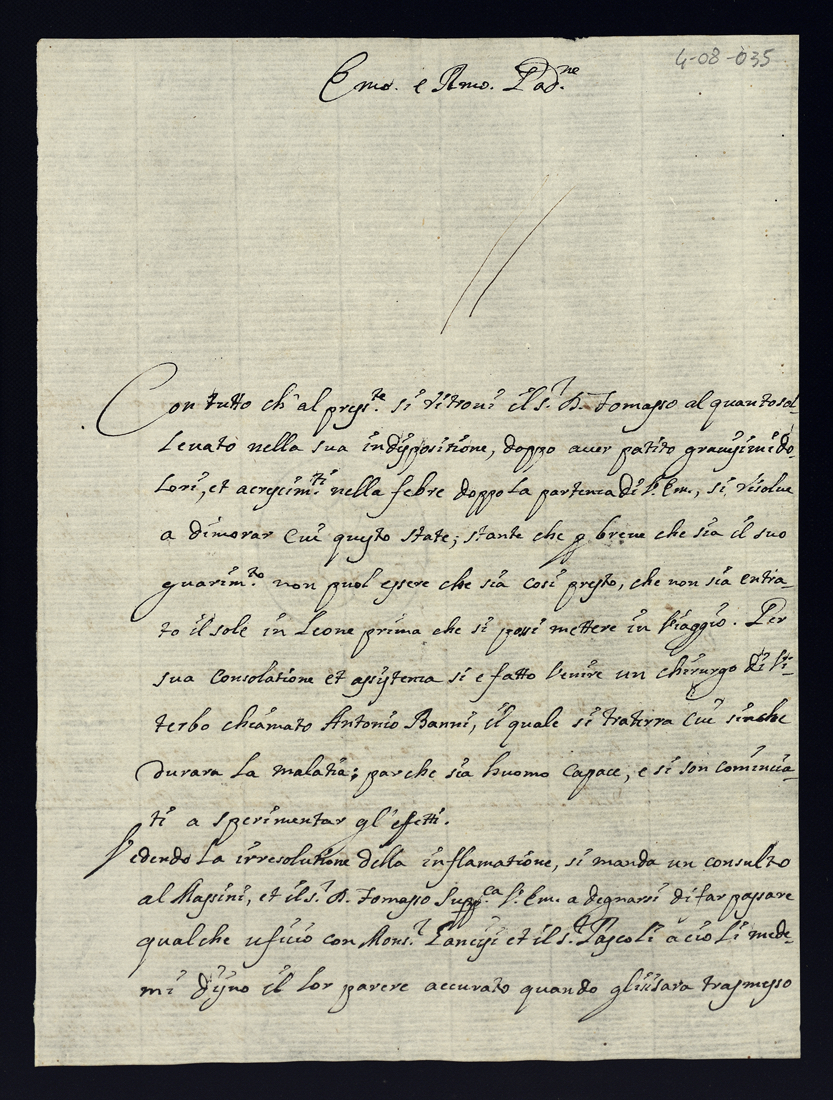 4-08-035
Emo. e Rmo. Pad.ne
Con tutto ch'al pres.te si ritroui il s.r D. Tomasso al quanto sol
leuato nella sua indispositione, doppo auer patito grauissimi do-
lori, et acresim.ti nella febre doppo la partenza di V. Em., si risolue
a dimorar cui questo state; stante che p breue che sia il suo
guarim.to non puol essere che sia cosi presto, che non sia entra-
to il sole in Leone prima che si possi mettere in Viaggio. Per
sua consolatione et assistenza si e fatto venire un chirurgo di Vi-
terbo chiamato Antonio Banni, il quale si traterra cui sinche
durara la malatia; par che sia huomo capace, e si son comincia-
ti a sperimentar gl'effetti.
Vedendo la irresolutione della inflamatione, si manda un consulto
al Massini, et il s.r D. Tomasso supp.ca V. Em. a degnarsi di far passare
qualche ufficio con Mons.r Lancisi et il s.r Pascoli acio li mede-
mi dijno il lor parere accurato quando gli sara trasmesso